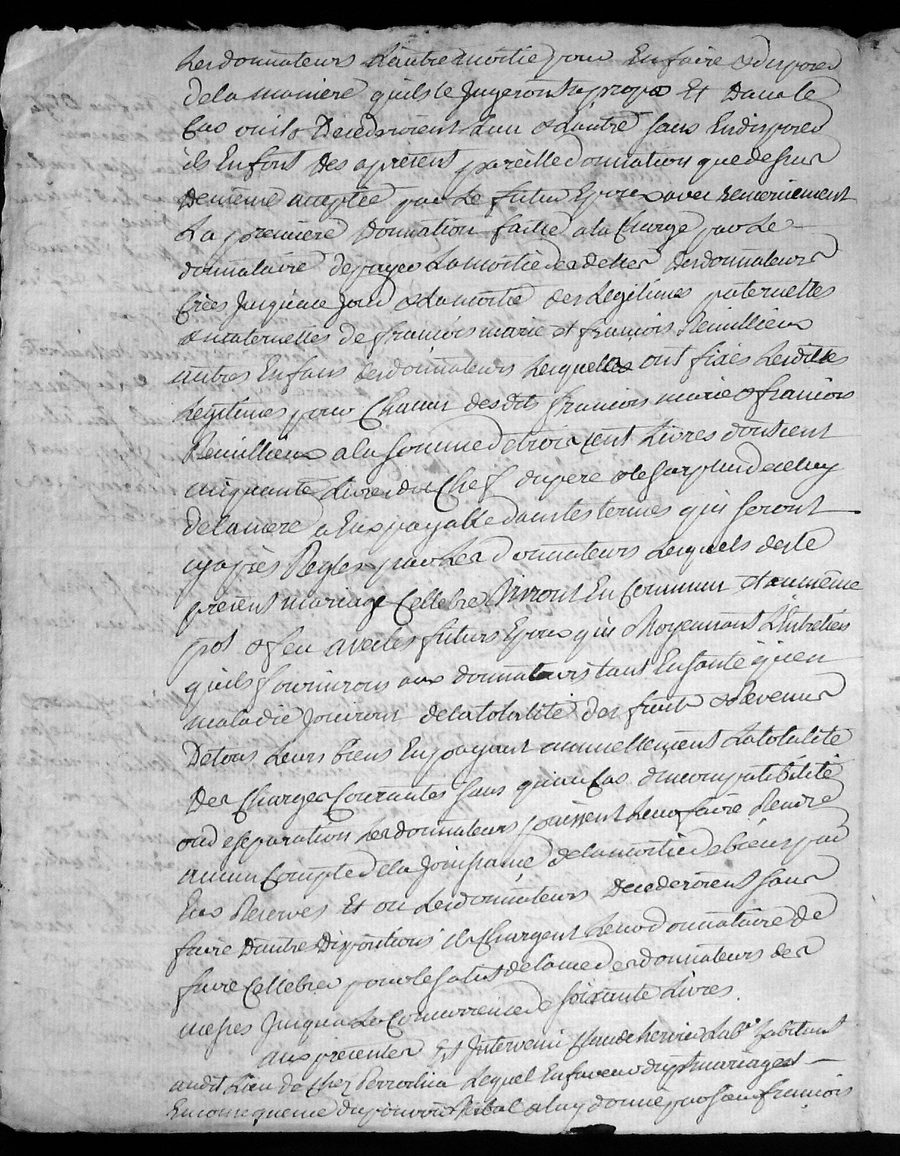 Lesdonnateurs L'autre moitié pour En faire & disposer
de la maniere quils le Jugeront apropos Et Dans le
Cas ou ils Decederoient L'un & L'autre sans En disposer
ils En font Des apresent pareille donnation que dessus
De meme acceptée par Le futur Epoux avec remerciement
La premiere Donnation faitte a la Charge par Le
donnataire de payer La moitié des dettes desdonnateurs
Crées Jusqu'a ce Jour & La moitié des Legitimes paternelles
& maternelles de francois marie et francois Remillieux
autres Enfans desdonnateurs Lesquelles ont fixés Lesdittes
Legitimes pour Chacun desdits francois marie & francois
Remillieux a la somme de trois cent Livres dont cent
cinquante Livres du Chef du pere & Le surplus de celuy
de la mere a Eux payable dans les termes qui seront
cy apres Regles par Les donnateurs Lesquels des le
present mariage Cellebré Vivront En Commun & au même
pot & feu avec les futurs Epoux qui Moyennant L'Entretien
quils fourniront aux donnateurs tant En santé qu'en
maladie Jouiront de la totalité des fruits & Revenus
De tous Leurs biens En payant annuellement La totalité
Des Charges Courantes sans qu'au Cas d'incompatibilité
ou de separation Lesdonnateurs puissent Leur faire Rendre
aucun Compte de la Jouissance de la moitié des biens par
Eux Reservés Et ou Lesdonnateurs Decederoient sans
faire D'autres Dispositions ils Chargent Leur donnataire de
faire Cellebrer pour le salut de l'ame desdonnateurs des
messes Jusqu'a La Concurrence de soixante Livres.
aux presentes Est Intervenu Claude habitant
audit Lieu de Chez Lequel En faveur dudit mariage
En consequence du pouvoir a luy donné par francois